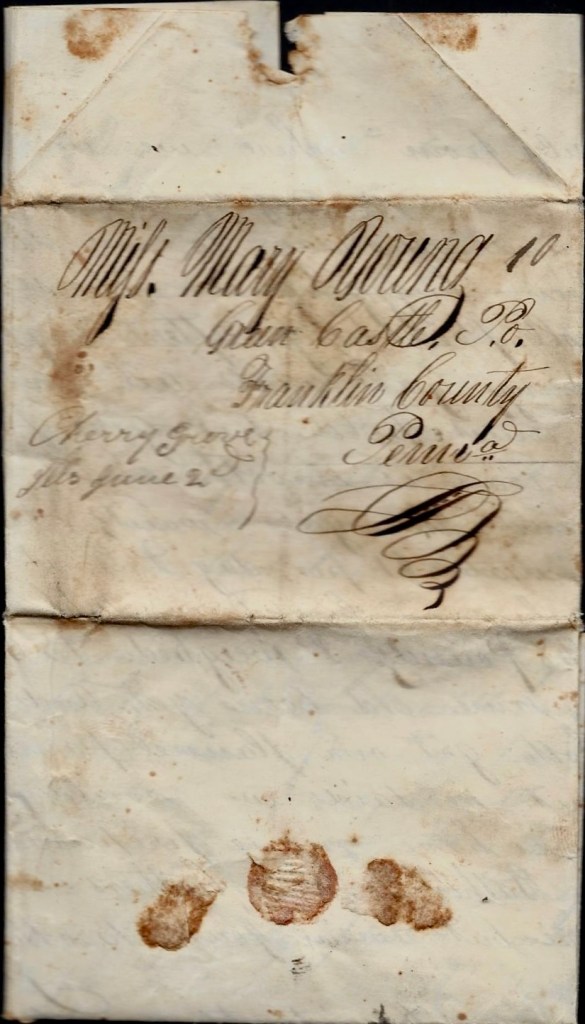 Miss. Mary Young 10
Green Castle, P.o.
Franklin County
Penna
Cherry Grove
Ills June 2d